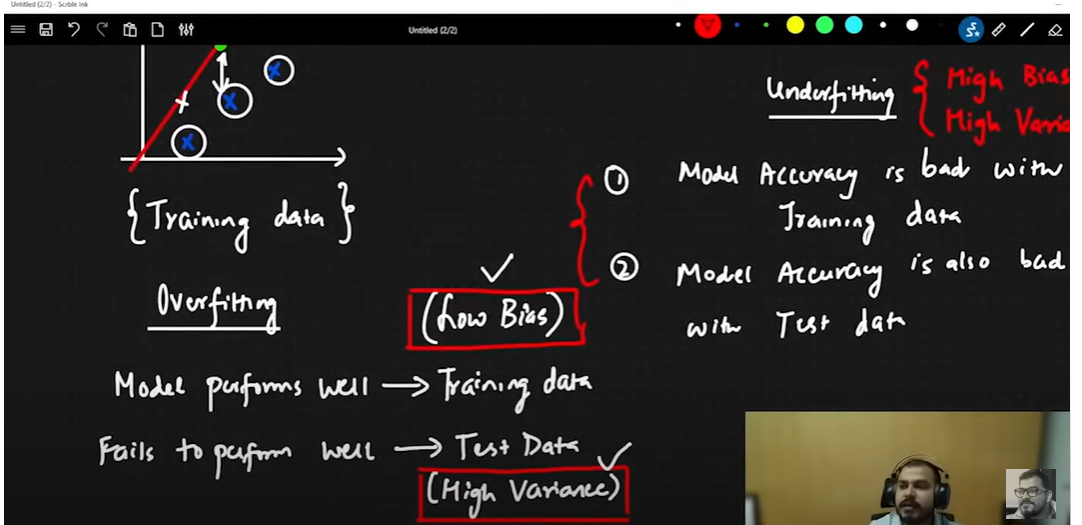 Untitled (2/2) - Scrble Ink
Untitled (2/2)
{Training data}
Overfitting
(Low Bias)
Model performs well → Training data
Fails to perform well → Test Data
(High Variance)
Underfitting { High Bias
High Varia
① Model Accuracy is bad with
Training data
② Model Accuracy is also bad
with Test data